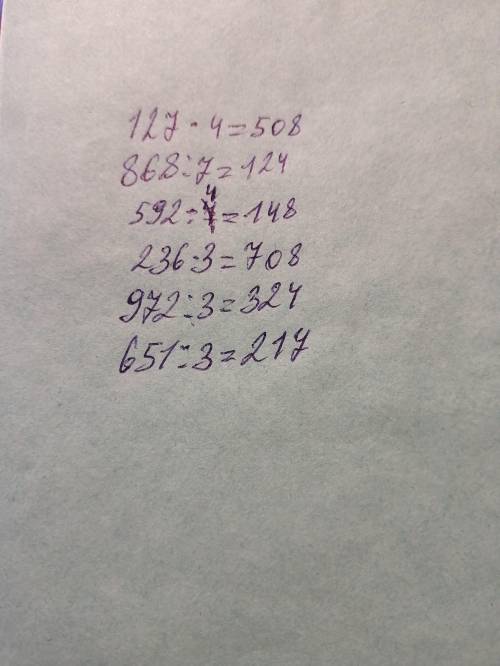 127 · 4 = 508
868 : 7 = 124
592 : 4 = 148
236 · 3 = 708
972 : 3 = 324
651 : 3 = 217